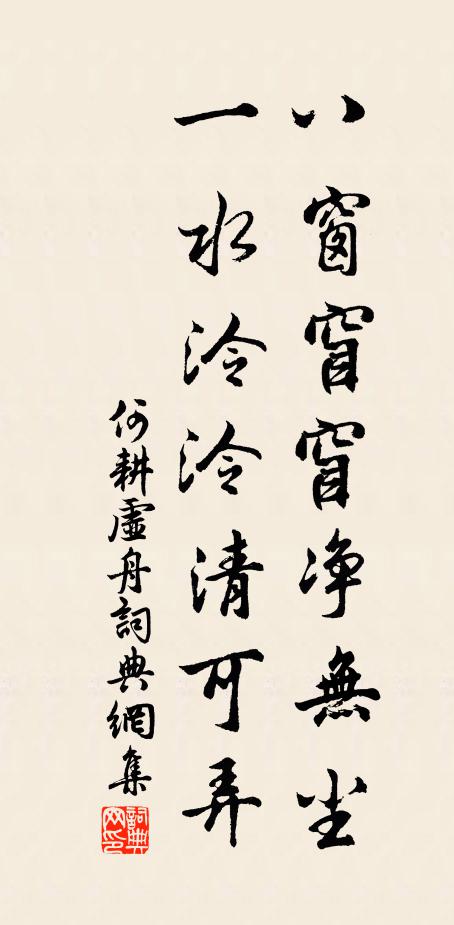 八窗窅窅净無尘
一水泠泠清可弄
何耕虛舟詞典網集
詞典網印